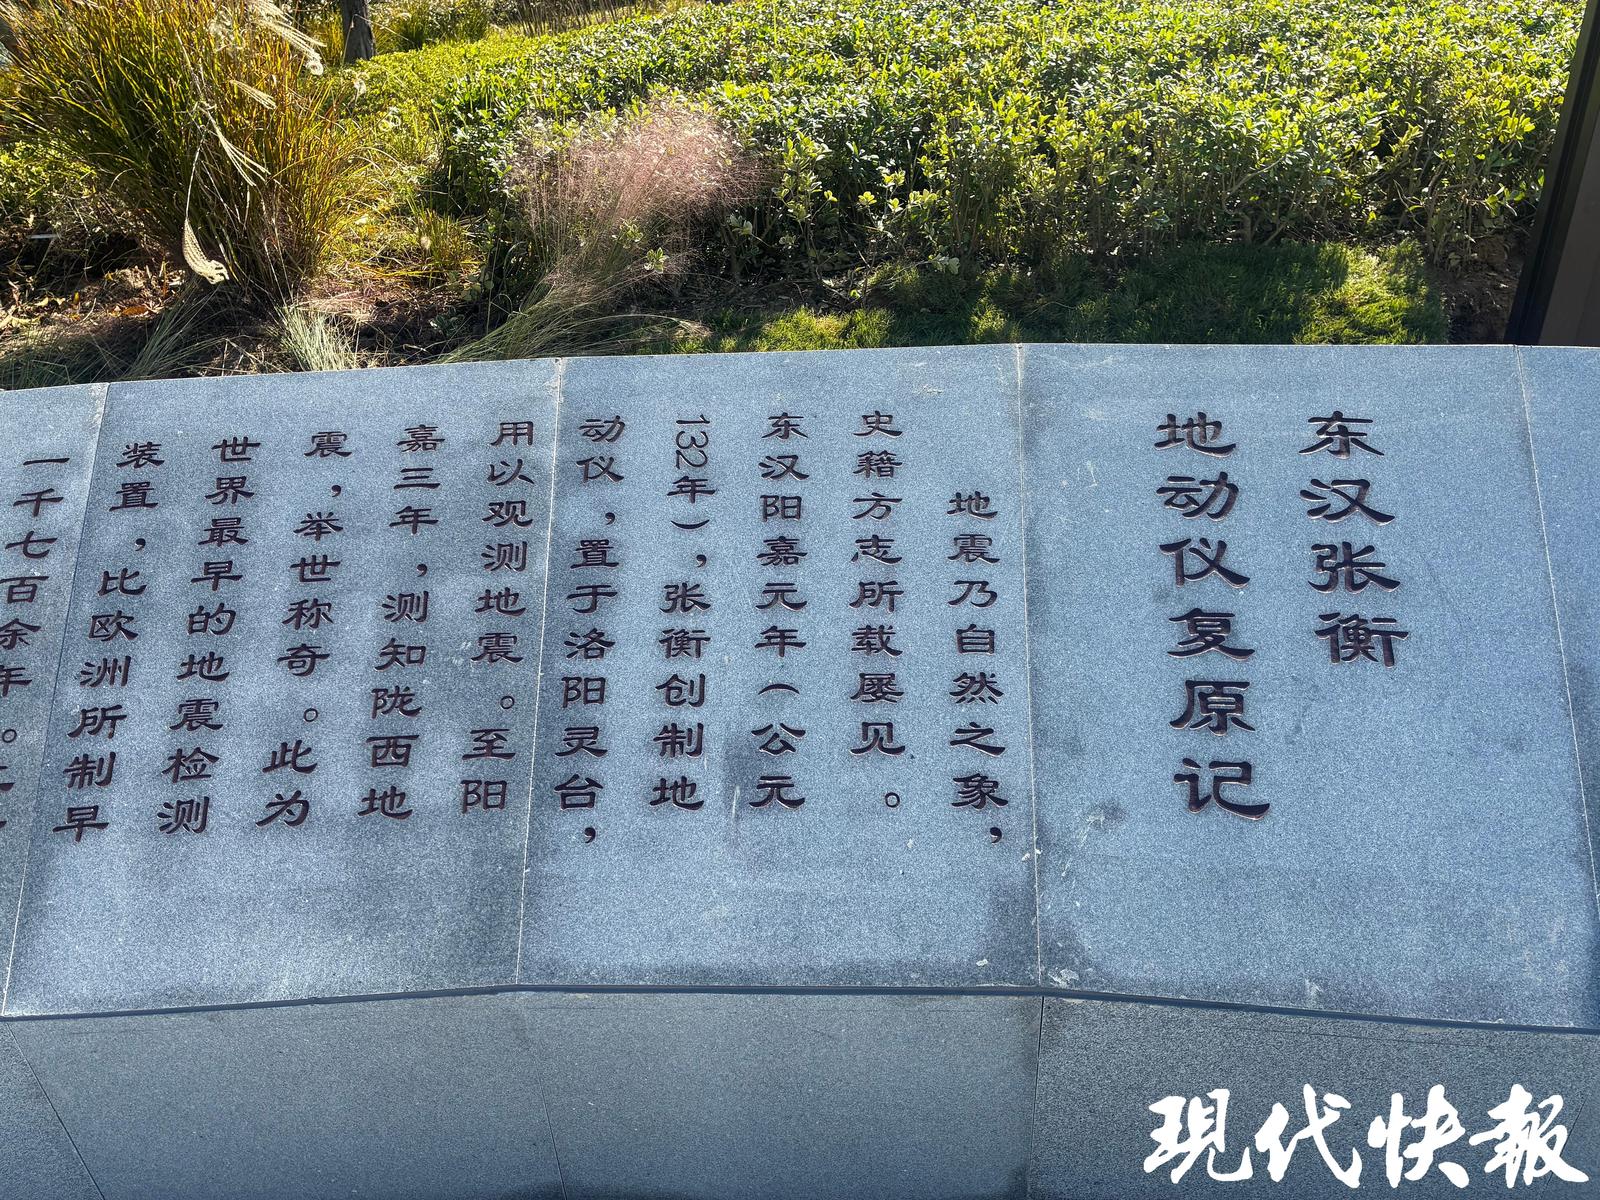 东汉张衡
地动仪复原记
地震乃自然之象，
史籍方志所载屡见。
东汉阳嘉元年（公元
132年），张衡创制地
动仪，置于洛阳灵台，
用以观测地震。至阳
嘉三年，测知陇西地
震，举世称奇。此为
世界最早的地震检测
装置，比欧洲所制早
一千七百余年。
现代快報